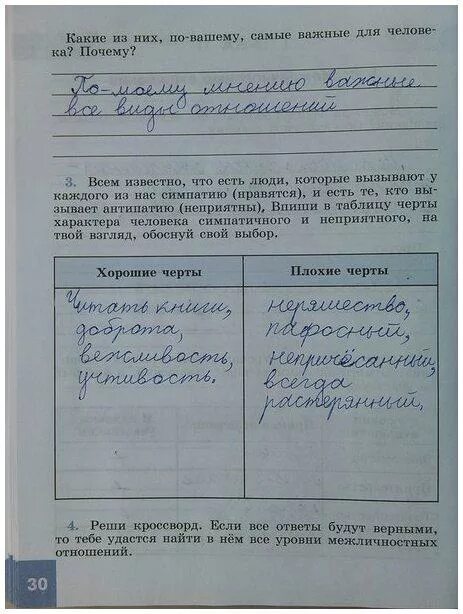 Какие из них, по-вашему, самые важные для челове-
ка? Почему?
По-моему мнению важные
все виды отношений
3. Всем известно, что есть люди, которые вызывают у
каждого из нас симпатию (нравятся), и есть те, кто вы-
зывает антипатию (неприятны), Впиши в таблицу черты
характера человека симпатичного и неприятного, на
твой взгляд, обоснуй свой выбор.
Хорошие черты
Плохие черты
Читать книги,
доброта,
вежливость,
учтивость.
неряшество,
пафосный,
непричёсанный,
всегда
растерянный.
4. Реши кроссворд. Если все ответы будут верными,
то тебе удастся найти в нём все уровни межличностных
отношений.
30